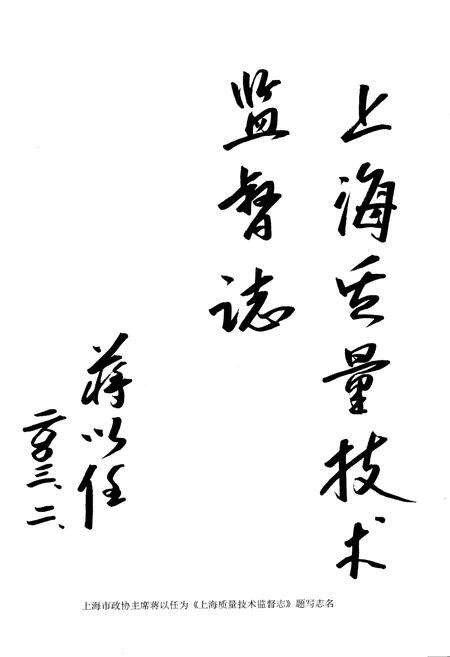 上海质量技术
监督誌
蒋以任
二〇〇三、二、
上海市政协主席蒋以任为《上海质量技术监督志》题写志名